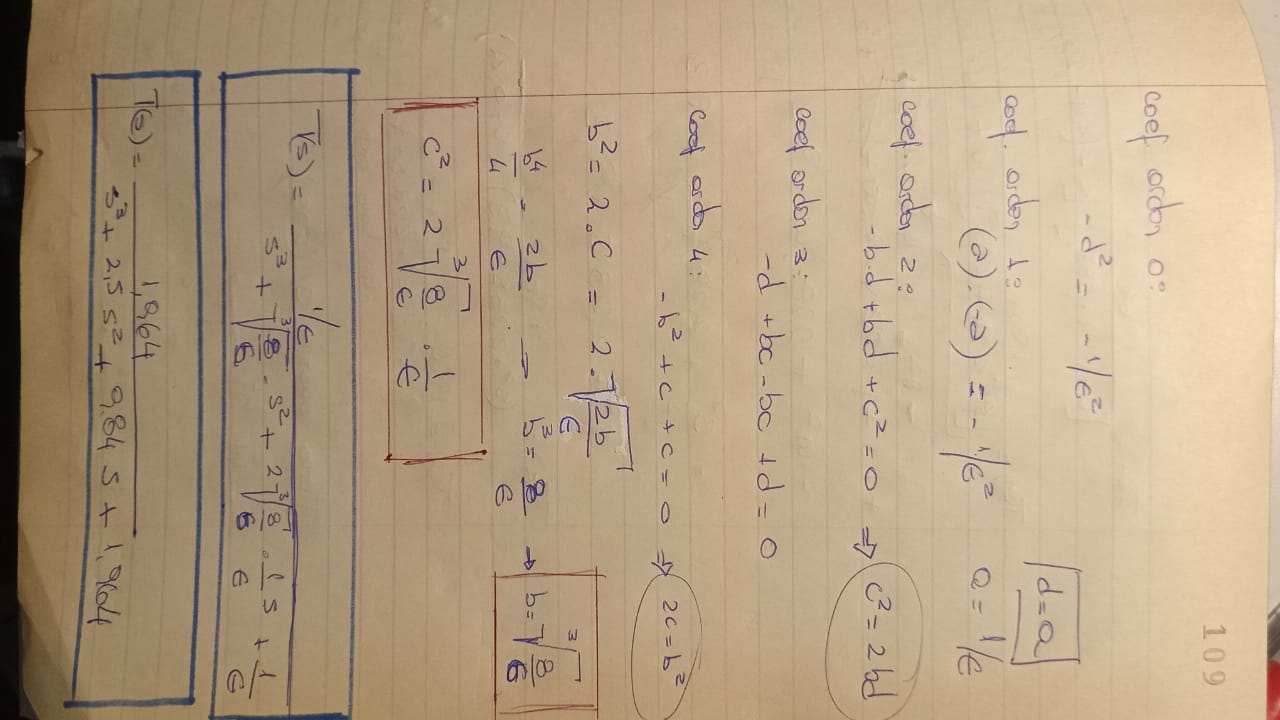 109
coef orden 0:
-d² = -1/ϵ²
d=a
coef. orden 1:
(a).(-a) = -1/ϵ² a = 1/ϵ
coef. orden 2:
-b.d + bd + c² = 0 ⇒ c² = 2bd
coef orden 3:
-d + bc - bc + d = 0
coef orden 4:
-b² + c + c = 0 ⇒ 2c = b²
b² = 2.C = 2.√(2b/ϵ)
b⁴/4 = 2b/ϵ → b³ = 8/ϵ → b = ∛(8/ϵ)
c² = 2 ∛(8/ϵ) . 1/ϵ
T(s) = (1/ϵ) / (s³ + ∛(8/ϵ) . s² + 2 ∛(8/ϵ) . 1/ϵ s + 1/ϵ)
T(s) = 1,964 / (s³ + 2,5 s² + 9,84 s + 1,964)